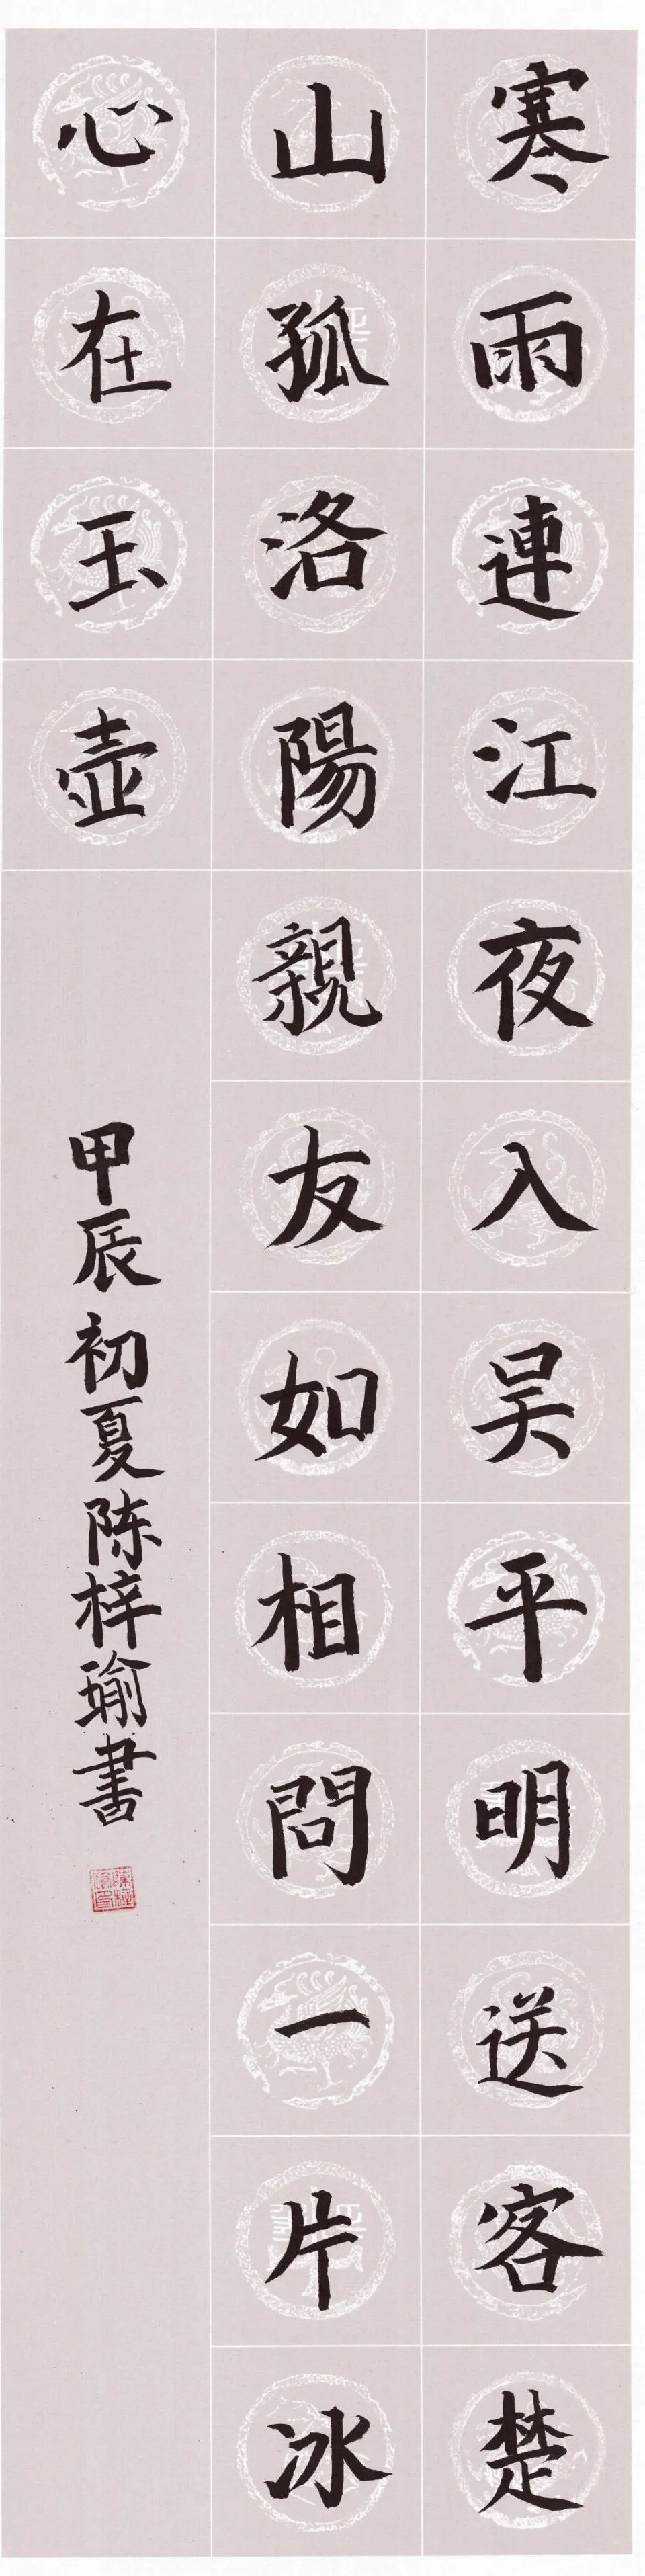 寒雨連江夜入吴平明送客楚
山孤洛陽親友如相問一片冰
心在玉壺
甲辰初夏陈梓瑜書